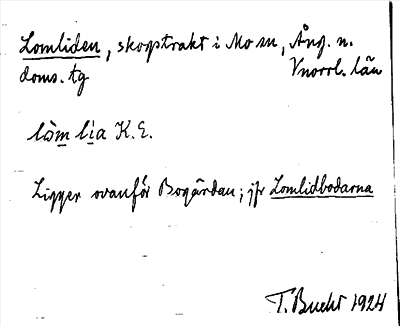 Lomliden, skogstrakt i Mo sn, Ång. n.
doms. tg Vnorrl. län
lòm lìa K.E.
Ligger ovanför Bogårdan; jfr Lomlidbodarna
T. Bucht 1924